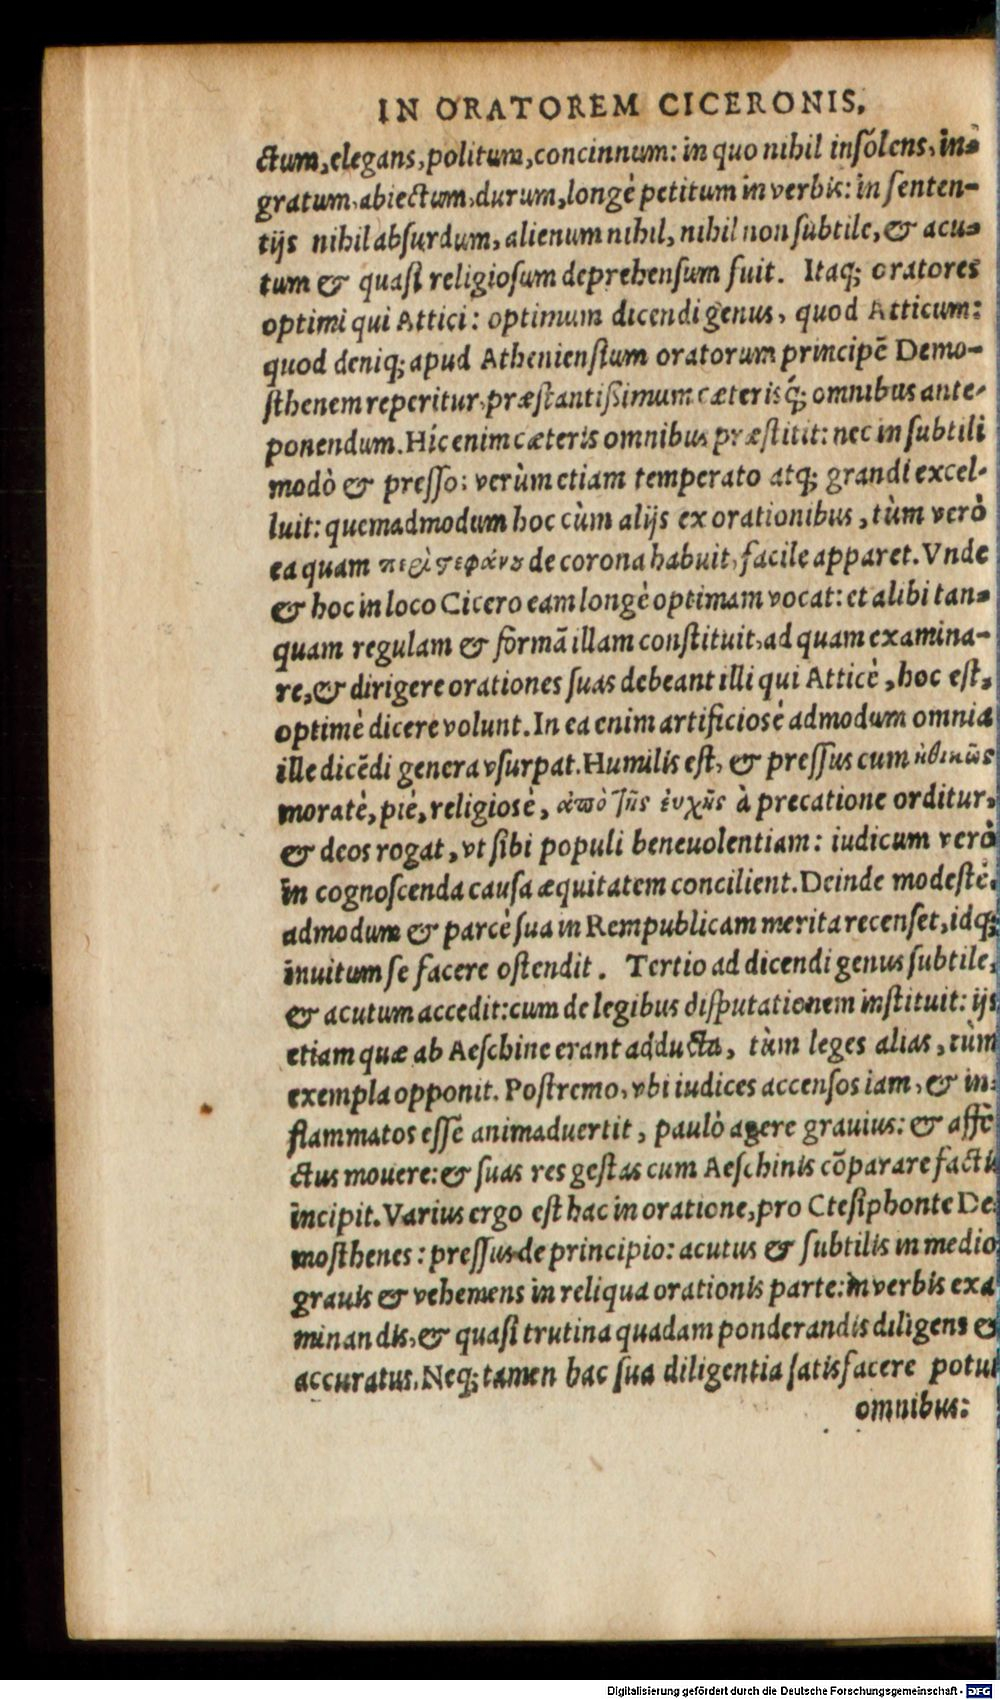 IN ORATOREM CICERONIS.
ctum, elegans, politum, concinnum: in quo nihil insõlens, in-
gratum, abiectum, durum, longè petitum in verbis: in senten-
tijs nihil absurdum, alienum nihil, nihil non subtile, & acu-
tum & quasi religiosum deprehensum fuit. Itaq; oratores
optimi qui Attici: optimum dicendi genus, quod Atticum:
quod deniq; apud Atheniensium oratorum principē Demo-
sthenem reperitur, præstantißimum cæterisq́; omnibus ante-
ponendum. Hic enim cæteris omnibus præstitit: nec in subtili
modò & presso: verùm etiam temperato atq; grandi excel-
luit: quemadmodum hoc cùm alijs ex orationibus, tùm verò
ea quam περὶ στεφάνου de corona habuit, facile apparet. Vnde
& hoc in loco Cicero eam longè optimam vocat: et alibi tan-
quam regulam & formā illam constituit, ad quam examina-
re, & dirigere orationes suas debeant illi qui Atticè, hoc est,
optimè dicere volunt. In ea enim artificiosè admodum omnia
ille dicēdi genera vsurpat. Humilis est, & pressus cum ἠθικῶς
moratè, piè, religiosè, ἀπὸ τῆς ἐυχῆς à precatione orditur,
& deos rogat, vt sibi populi beneuolentiam: iudicum verò
in cognoscenda causa æquitatem concilient. Deinde modestè,
admodum & parcè sua in Rempublicam merita recenset, idq;
inuitum se facere ostendit. Tertio ad dicendi genus subtile,
& acutum accedit: cum de legibus disputationem instituit: ijs
etiam quæ ab Aeschine erant adducta, tùm leges alias, tùm
exempla opponit. Postremo, vbi iudices accensos iam, & in-
flammatos esse animaduertit, paulò agere grauius: & affe
ctus mouere: & suas res gestas cum Aeschinis cōparare factis
incipit. Varius ergo est hac in oratione, pro Ctesiphonte De
mosthenes: pressus de principio: acutus & subtilis in medio
grauis & vehemens in reliqua orationis parte: in verbis exa
minandis, & quasi trutina quadam ponderandis diligens &
accuratus. Neq; tamen hac sua diligentia satisfacere potui
omnibus:
Digitalisierung gefördert durch die Deutsche Forschungsgemeinschaft - DFG